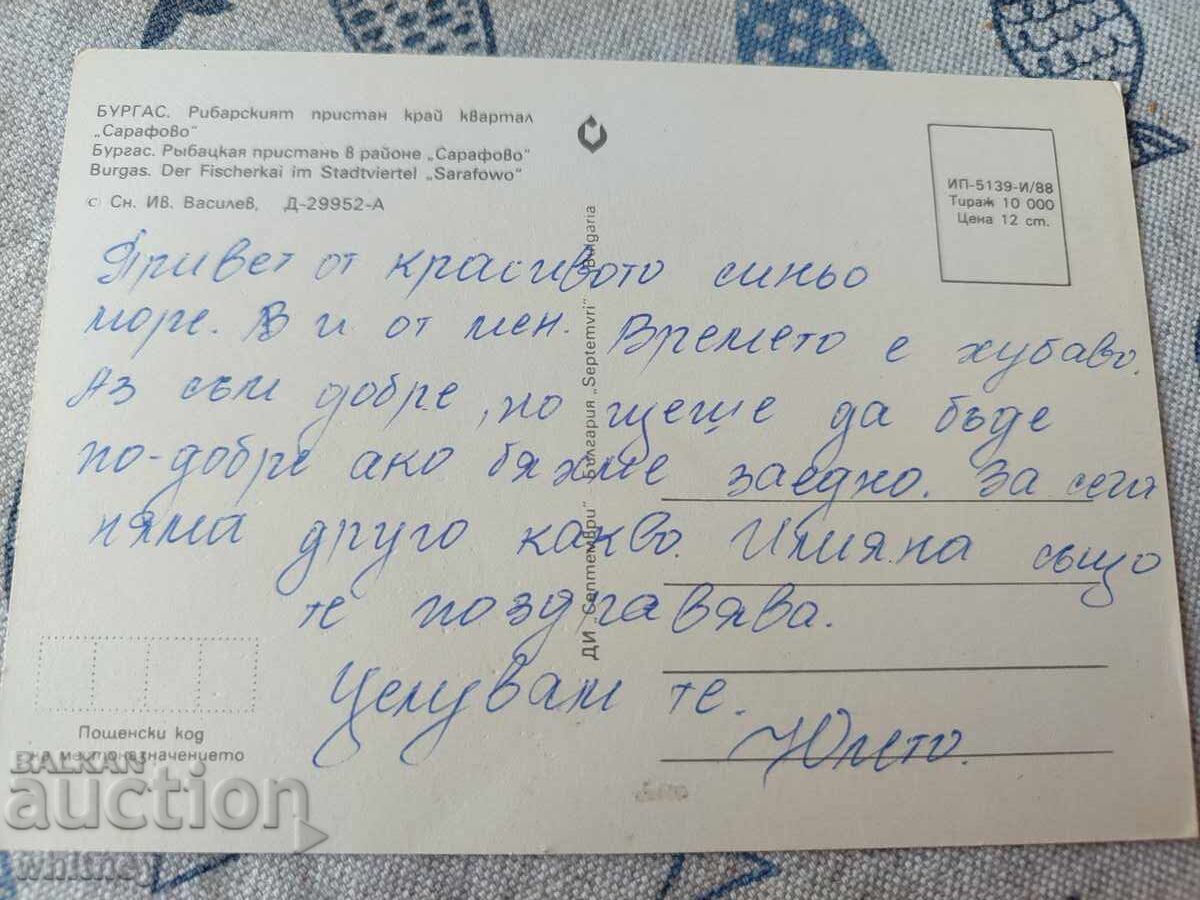 БУРГАС. Рибарският пристан край квартал
„Сарафово"
Бургас. Рыбацкая пристань в районе „Сарафово"
Burgas. Der Fischerkai im Stadtviertel „Sarafowo"
© Сн. Ив. Василев, Д-29952-А
ИП-5139-И/88
Тираж 10 000
Цена 12 ст.
ДИ „Септември" - България „Septemvri" Bulgaria
Привет от красивото синьо
море. В и от мен. Времето е хубаво.
Аз съм добре, но щеше да бъде
по-добре ако бяхме заедно. За сега
няма друго какво. Илияна също
те поздравява.
Целувам те.
Юлето.
Пощенски код
на местоназначението
BALKAN
auction
whitney